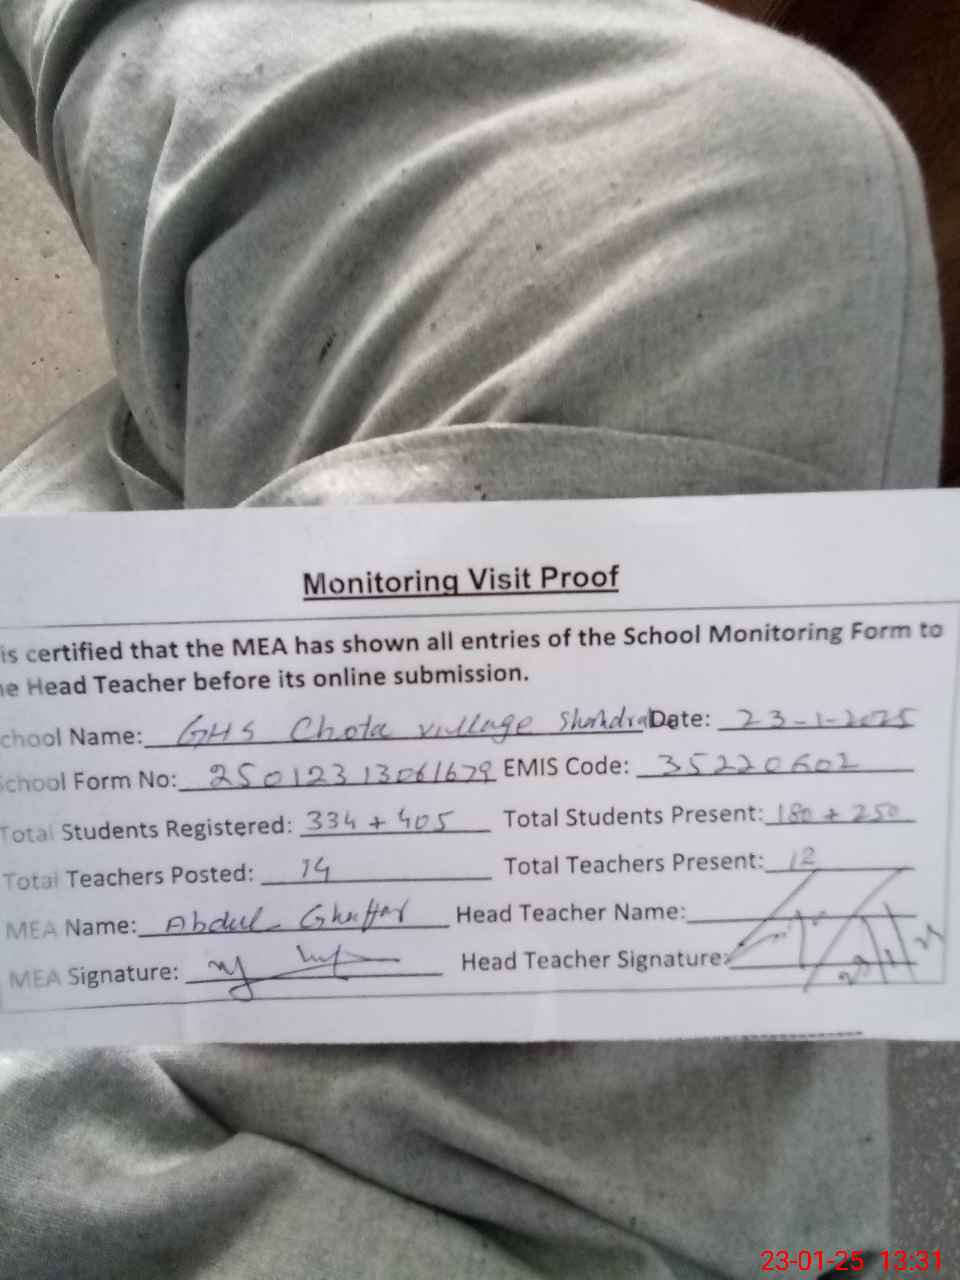 Monitoring Visit Proof
is certified that the MEA has shown all entries of the School Monitoring Form to
e Head Teacher before its online submission.
chool Name: GHS Chota village Shahdra Date: 23-1-2025
School Form No: 25012313061679 EMIS Code: 35220602
Total Students Registered: 334 + 405 Total Students Present: 180 + 250
Total Teachers Posted: 14 Total Teachers Present: 12
MEA Name: Abdul Ghaffar Head Teacher Name:
MEA Signature: Head Teacher Signature:
23-01-25 13:31